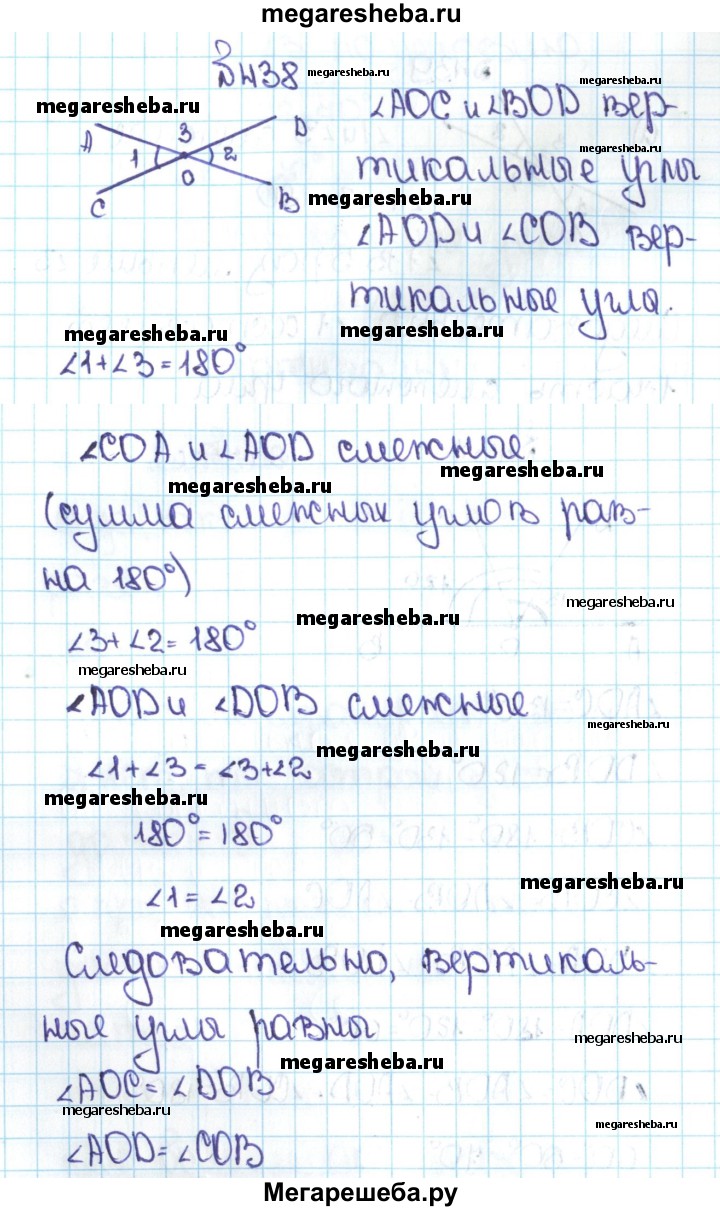 megaresheba.ru
№438 megaresheba.ru
megaresheba.ru
megaresheba.ru
A 3 D
1 2
O
C B
∠AOC и ∠BOD вер-
megaresheba.ru
тикальные углы
megaresheba.ru
∠AOD и ∠COB вер-
тикальные угла.
megaresheba.ru
megaresheba.ru
∠1+∠3=180°
∠COA и ∠AOD смежные.
megaresheba.ru
megaresheba.ru
(сумма смежных углов рав-
на 180°)
megaresheba.ru
megaresheba.ru
∠3+∠2=180°
megaresheba.ru
∠AOD и ∠DOB смежные
megaresheba.ru
megaresheba.ru
∠1+∠3=∠3+∠2
megaresheba.ru
180°=180°
megaresheba.ru
∠1=∠2
megaresheba.ru
Следовательно, вертикаль-
ные углы равны
megaresheba.ru
megaresheba.ru
∠AOC=∠DOB
megaresheba.ru
megaresheba.ru
∠AOD=∠COB
Мегарешеба.ру